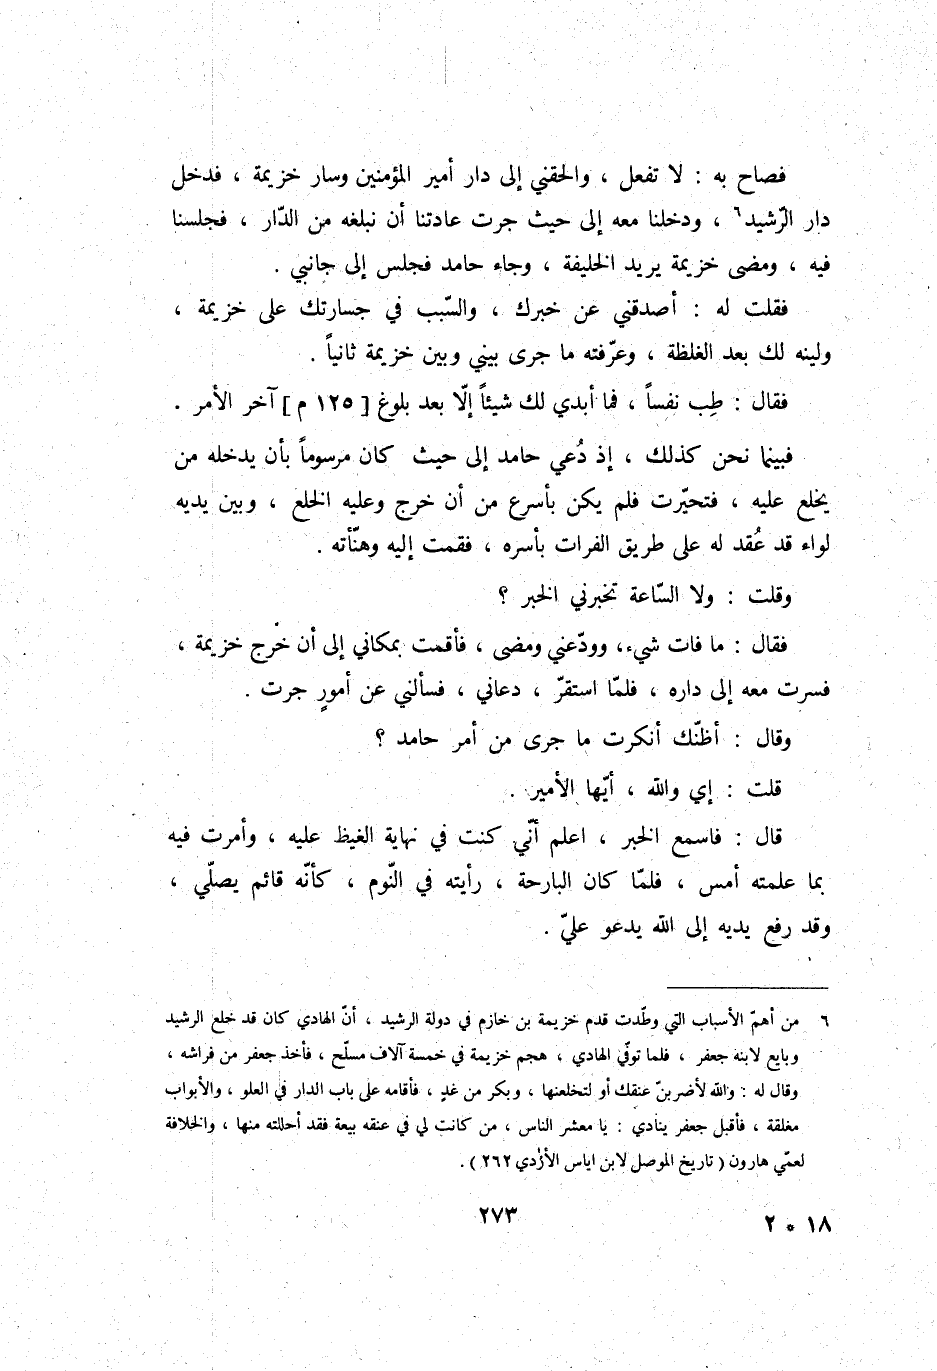 فصاح به : لا تفعل ، والحقني إلى دار أمير المؤمنين وسار خزيمة ، فدخل
دار الرّشيد٦ ، ودخلنا معه إلى حيث جرت عادتنا أن نبلغه من الدّار ، فجلسنا
فيه ، ومضى خزيمة يريد الخليفة ، وجاء حامد فجلس إلى جانبي .
فقلت له : أصدقني عن خبرك ، والسّبب في جسارتك على خزيمة ،
ولينه لك بعد الغلظة ، وعرّفته ما جرى بيني وبين خزيمة ثانياً .
فقال : طِب نفساً ، فما أبدي لك شيئاً إلّا بعد بلوغ [ ١٢٥ م ] آخر الأمر .
فبينما نحن كذلك ، إذ دُعي حامد إلى حيث كان مرسوماً بأن يدخله من
يخلع عليه ، فتحيّرت فلم يكن بأسرع من أن خرج وعليه الخلع ، وبين يديه
لواء قد عُقد له على طريق الفرات بأسره ، فقمت إليه وهنّأته .
وقلت : ولا السّاعة تخبرني الخبر ؟
فقال : ما فات شيء، وودّعني ومضى ، فأقمت بمكاني إلى أن خرج خزيمة ،
فسرت معه إلى داره ، فلمّا استقرّ ، دعاني ، فسألني عن أمورٍ جرت .
وقال : أظنّك أنكرت ما جرى من أمر حامد ؟
قلت : إي والله ، أيّها الأمير .
قال : فاسمع الخبر ، اعلم أنّي كنت في نهاية الغيظ عليه ، وأمرت فيه
بما علمته أمس ، فلمّا كان البارحة ، رأيته في النّوم ، كأنّه قائم يصلّي ،
وقد رفع يديه إلى الله يدعو عليّ .
٦ من أهمّ الأسباب التي وطّدت قدم خزيمة بن خازم في دولة الرشيد ، أنّ الهادي كان قد خلع الرشيد
وبايع لابنه جعفر ، فلما توفّي الهادي ، هجم خزيمة في خمسة آلاف مسلّح ، فأخذ جعفر من فراشه ،
وقال له : والله لأضربنّ عنقك أو لتخلعنها ، وبكر من غدٍ ، فأقامه على باب الدار في العلو ، والأبواب
مغلقة ، فأقبل جعفر ينادي : يا معشر الناس ، من كانت لي في عنقه بيعة فقد أحللته منها ، والخلافة
لعمّي هارون ( تاريخ الموصل لابن اياس الأزدي ٢٦٢ ) .
٢٧٣
١٨ * ٢